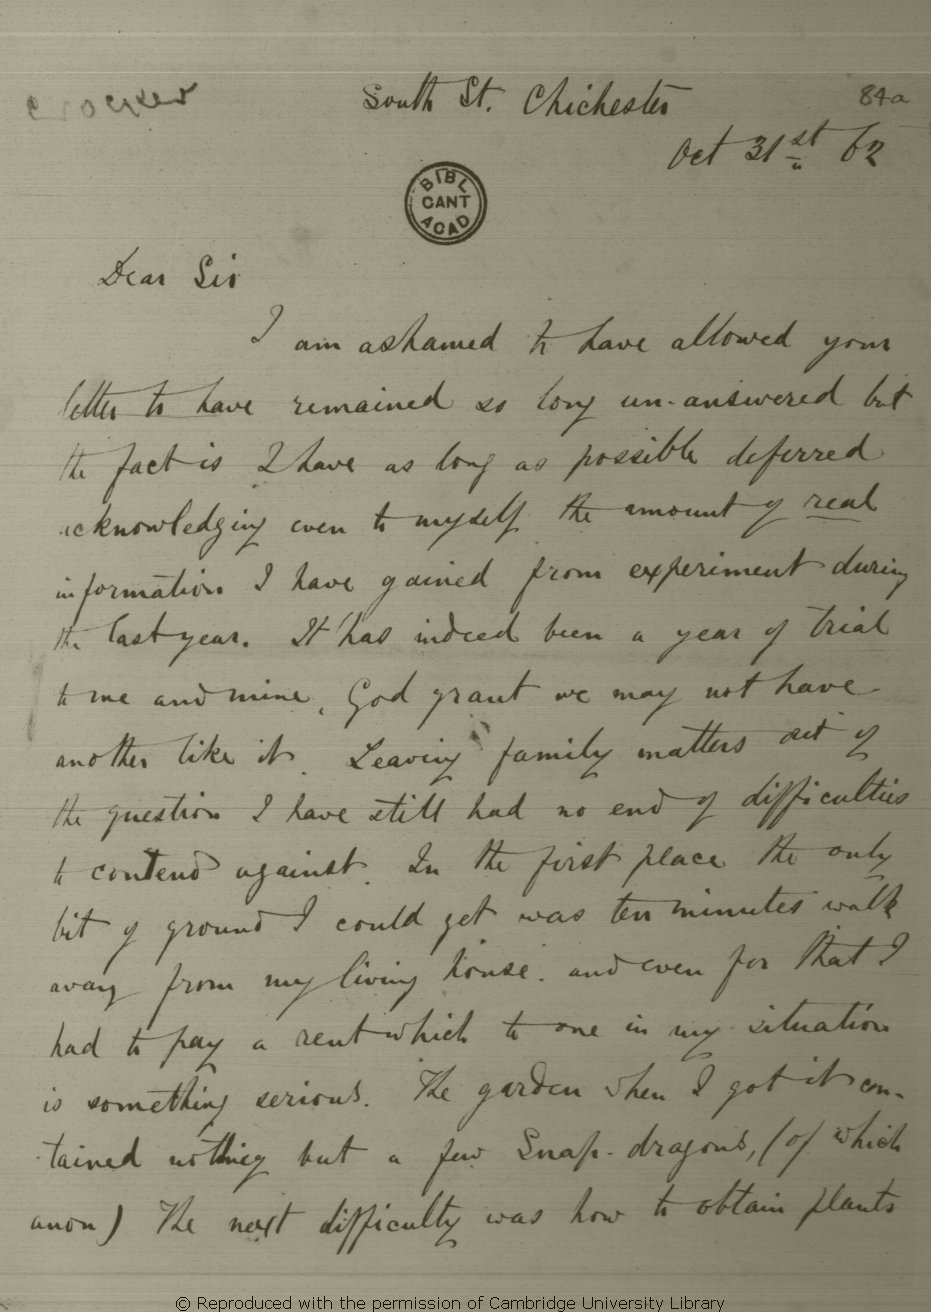 Crocker
South St. Chichester
84a
Oct 31st 62
BIBL
CANT
ACAD
Dear Sir
I am ashamed to have allowed your
letter to have remained so long un-answered but
the fact is I have as long as possible deferred
acknowledging even to myself the amount of real
information I have gained from experiment during
the last year. It has indeed been a year of trial
to me and mine, God grant we may not have
another like it. Leaving family matters out of
the question I have still had no end of difficulties
to contend against. In the first place the only
bit of ground I could get was ten minutes walk
away from my living house. and even for that I
had to pay a rent which to one in my situation
is something serious. The garden when I got it con-
tained nothing but a few Snap-dragons, (of which
anon) The next difficulty was how to obtain plants
© Reproduced with the permission of Cambridge University Library